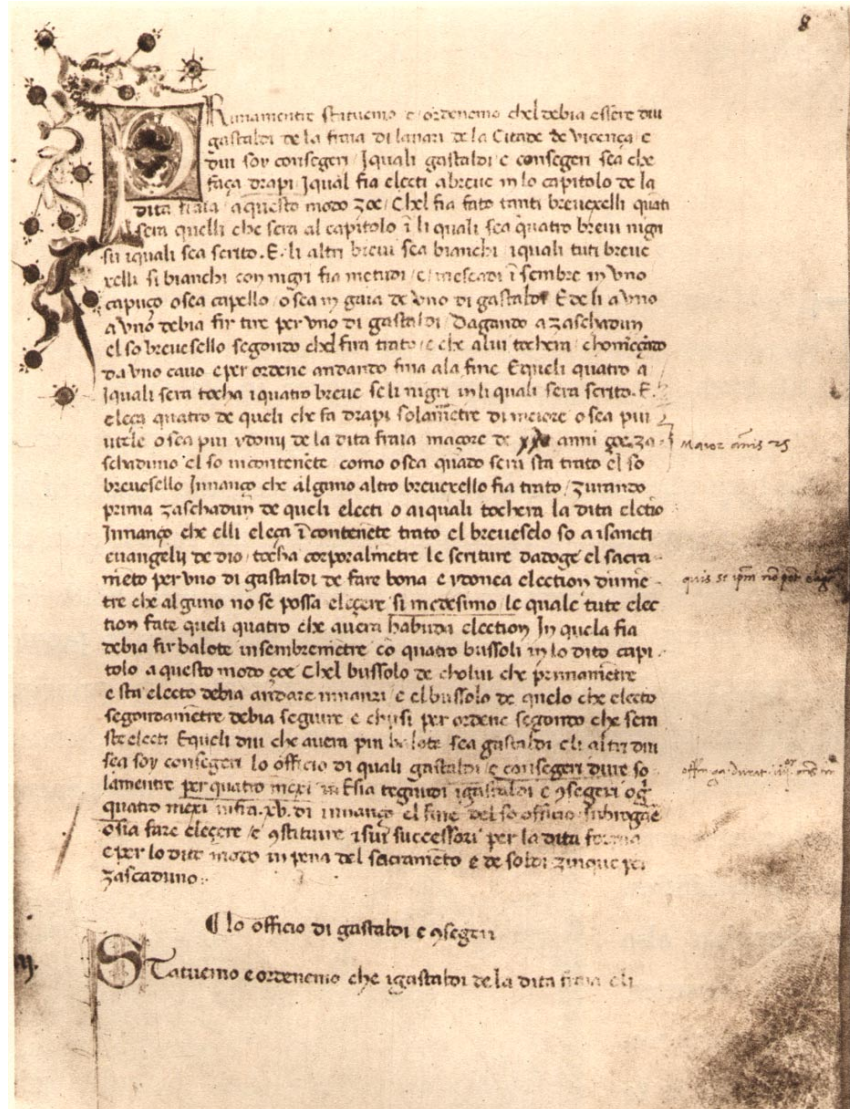 8
PRimamentre statuemo e ordenemo chel debia essere dui
gastaldi de la fraia di lanari de la Citade de vicença e
dui soy consegeri Iquali gastaldi e consegeri sea che
faça drapi Iqual fia electi abreue in lo capitolo de la
dita fraia a questo modo zoe Chel fia fato tanti breuexelli quãti
sera quelli che sera al capitolo ĩ li quali sea quatro breui nigri
su iquali sea scrito. E. li altri breui sea bianchi iquali tuti breue
xelli si bianchi con nigri fia metudi e mescadi ĩ sembre in vno
capuço o sea capello o sea in gaia de vno di gastaldi E de li a vno
a vno debia fir tire per vno di gastaldi Dagando a zaschadun
el so breuesello segondo chel fira trato e che a lui tochera chomẽçãdo
da vno cauo e per ordene andando fina ala fine E queli quatro a
Iquali sera tocha i quatro breue seli nigri in li quali sera scrito. E.
eleça quatro de queli che fa drapi solamẽtre di meiore o sea piu
utele o sea piu ydonij de la dita fraia maçore de anni za
schaduno el so incontenẽte como o sea quãdo sera sta trato el so
breuesello Innanço che alguno altro breuexello fia trato zurando
prima zaschadun de queli electi o ai quali tochera la dita electiõ
Innanço che elli eleça ĩ contenẽte trato el breueselo so a i sancti
euangelij de dio tocha corporalmẽtre le scriture dadoge el sacra
mẽto per vno di gastaldi de fare bona e ydonea election dumẽ
tre che alguno no se possa eleçere si medesimo le quale tute elec
tion fate queli quatro che auera habuda election In quela fia
debia fir balote insembremẽtre cõ quatro bussoli in lo dito capi
tolo a questo modo çoe Chel bussolo de cholui che primamẽtre
e sta electo debia andare innanzi e el bussolo de quelo che electo
segondamẽtre debia seguire e chusi per ordene segondo che sera
ste electi E queli dui che auera piu balote sea gastaldi e li altri dui
sea soy consegeri lo officio di quali gastaldi e consegeri dure so
lamentre per quatro mexi E sia tegnudi i gastaldi e 9segeri ogñ
quatro mexi infra .xv. di innanço el fine del so officio subrogare
o sia fare eleçere e 9stituire i sui successori per la dita forma
e per lo dito modo in pena del sacramẽto e de soldi zinque per
zascaduno.
Maior annis 25
quis se ipm nõ
lo officio di gastaldi e 9segeri
STatuemo e ordenemo che i gastaldi de la dita fraia e li